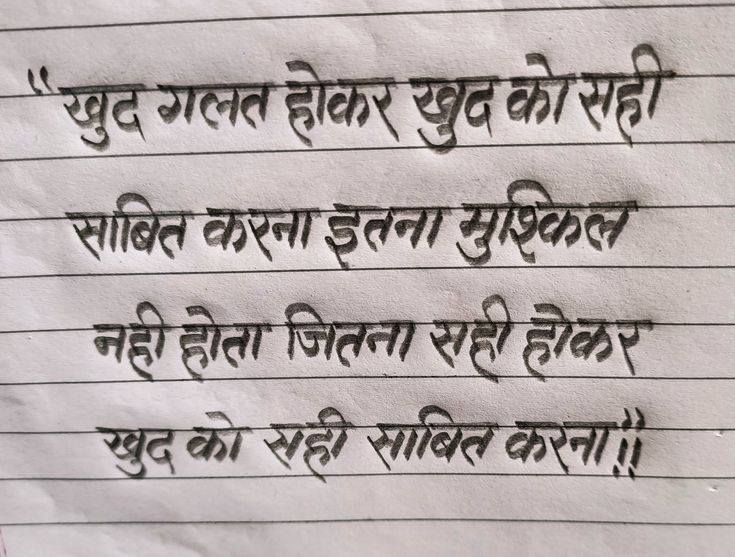 "खुद गलत होकर खुद को सही
साबित करना इतना मुश्किल
नही होता जितना सही होकर
खुद को सही साबित करना!!"